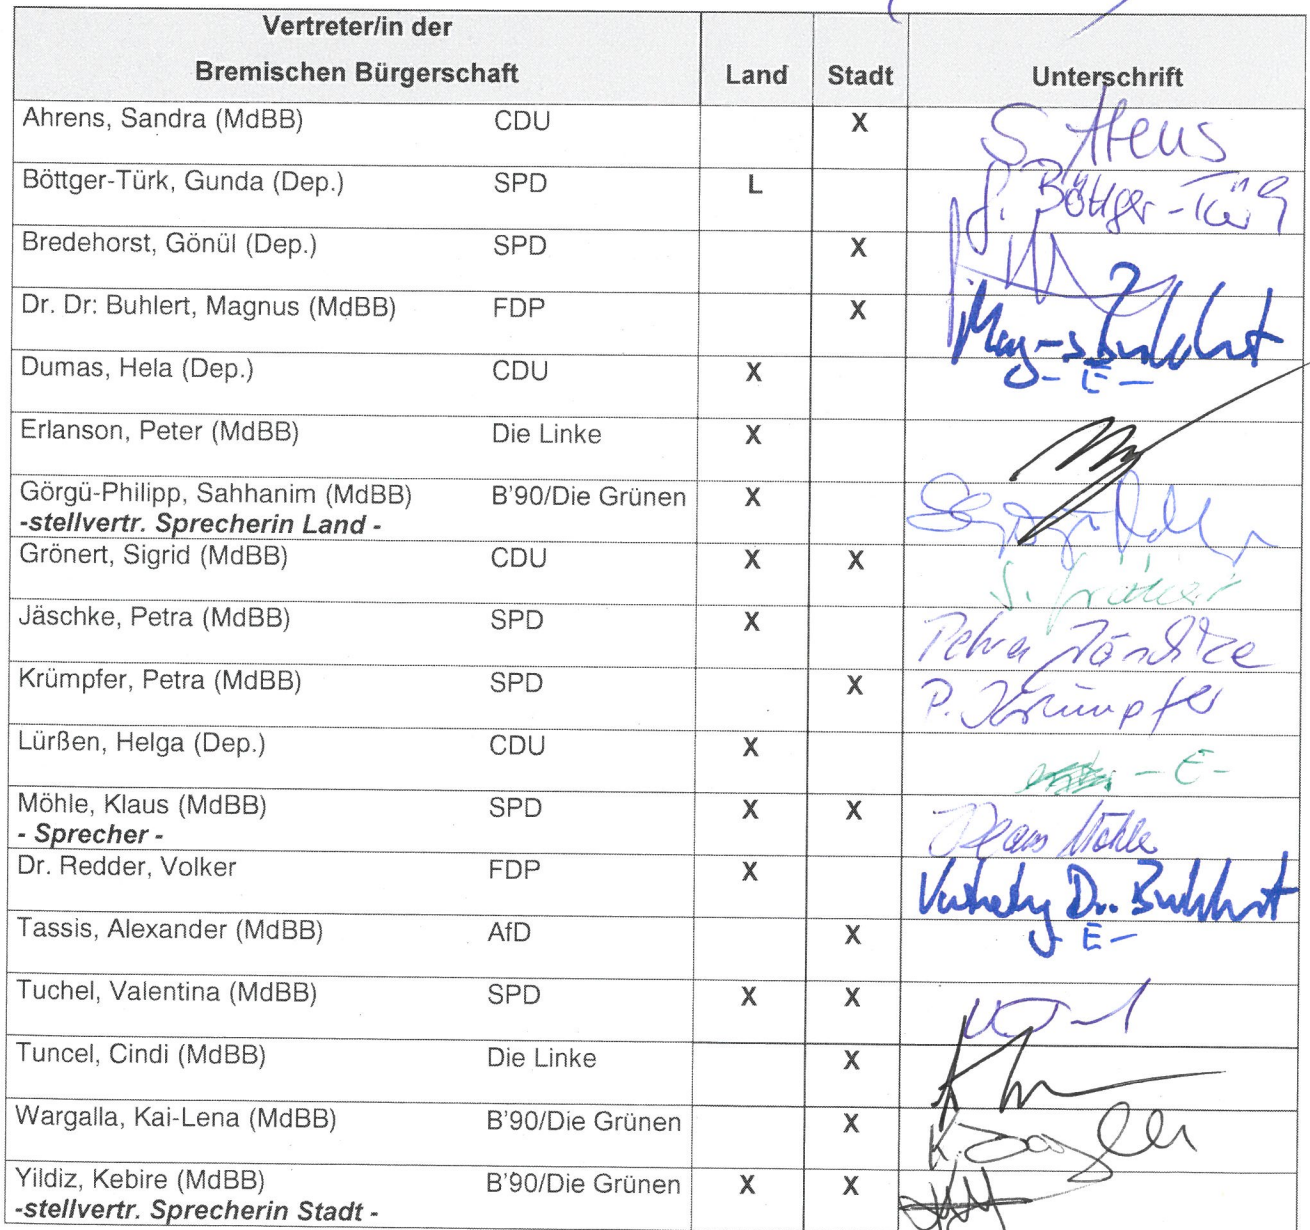 Vertreter/in der
Bremischen Bürgerschaft Land Stadt Unterschrift
Ahrens, Sandra (MdBB) CDU X S. Ahrens
Böttger-Türk, Gunda (Dep.) SPD L G. Böttger-Türk
Bredehorst, Gönül (Dep.) SPD X
Dr. Dr: Buhlert, Magnus (MdBB) FDP X Magnus Buhlert
Dumas, Hela (Dep.) CDU X - E -
Erlanson, Peter (MdBB) Die Linke X
Görgü-Philipp, Sahhanim (MdBB) B'90/Die Grünen X
-stellvertr. Sprecherin Land -
Grönert, Sigrid (MdBB) CDU X X S. Grönert
Jäschke, Petra (MdBB) SPD X Petra Jäschke
Krümpfer, Petra (MdBB) SPD X P. Krümpfer
Lürßen, Helga (Dep.) CDU X - E -
Möhle, Klaus (MdBB) SPD X X Klaus Möhle
- Sprecher -
Dr. Redder, Volker FDP X Dr. Buhlert
Tassis, Alexander (MdBB) AfD X - E -
Tuchel, Valentina (MdBB) SPD X X
Tuncel, Cindi (MdBB) Die Linke X
Wargalla, Kai-Lena (MdBB) B'90/Die Grünen X
Yildiz, Kebire (MdBB) B'90/Die Grünen X X
-stellvertr. Sprecherin Stadt -